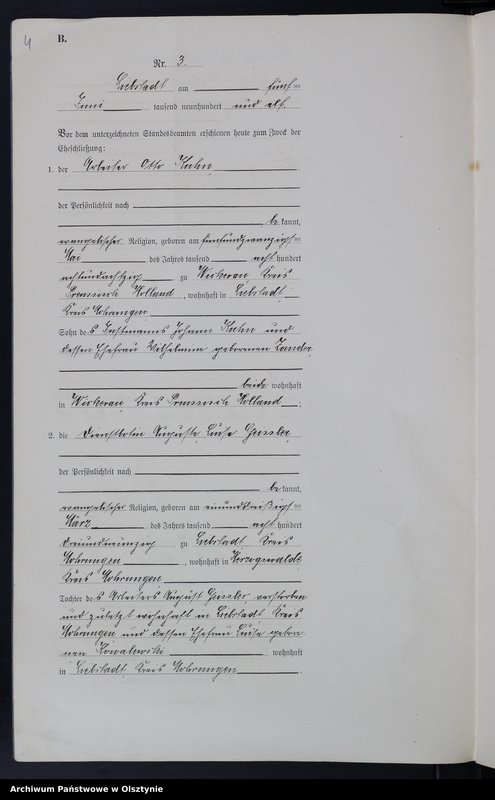 4
B.
Nr. 3.
Liebstadt am fünften
Juni tausend neunhundert und elf.
Vor dem unterzeichneten Standesbeamten erschienen heute zum Zweck der
Eheschließung:
1. der Arbeiter Otto Kuhn,
der Persönlichkeit nach
bekannt,
evangelischer Religion, geboren am fünfundzwanzigsten
Mai des Jahres tausend acht hundert
achtundachtzig zu Weskenau, Kreis
Preussisch Holland, wohnhaft in Liebstadt,
Kreis Mohrungen
Sohn des Instmanns Johann Kuhn und
dessen Ehefrau Wilhelmine geborenen Zander,
beide wohnhaft
in Kreis Preussisch Holland.
2. die Dienstbotin Auguste Luise Geissler,
der Persönlichkeit nach
bekannt,
evangelischer Religion, geboren am einunddreißigsten
März des Jahres tausend acht hundert
dreiundneunzig zu Liebstadt, Kreis
Mohrungen, wohnhaft in Herzogswalde
Kreis Mohrungen
Tochter des Arbeiters August Geissler verstorben
und zuletzt wohnhaft in Liebstadt Kreis
Mohrungen und dessen Ehefrau Luise gebore
nen Kowalewski wohnhaft
in Liebstadt, Kreis Mohrungen.
Archiwum Państwowe w Olsztynie